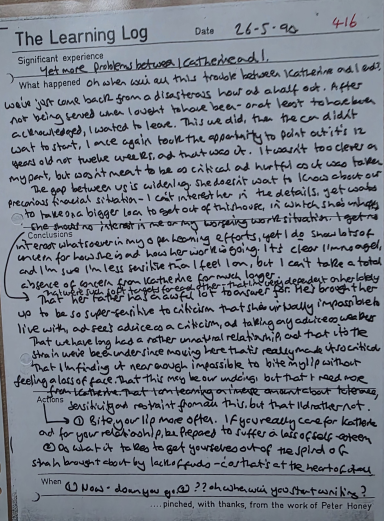 The Learning Log Date 26-5-90 416
Significant experience
Yet more problems between Katherine and I.
What happened Oh when will all this trouble between Katherine and I end?
We've just come back from a disasterous hour and a half out. After
not being served when I ought to have been - or at least to have been
acknowledged, I wanted to leave. This we did, then the car didn't
want to start, I once again took the opportunity to point out it's 12
years old not twelve weeks, and that was it. It wasn't too clever on
my part, but wasn't meant to be as critical and hurtful as it was taken.
The gap between us is widening. She doesn't want to know about our
precarious financial situation - I can't interest her in the details, yet wants
to take on a bigger loan to get out of this house, in which she's unhappy.
She shows no interest in me or my worsening work situation. I get no
Conclusions
interest whatsoever in my open learning efforts, yet I do show lots of
concern for how she is and how her work is going. It's clear I'm no angel,
and I'm sure I'm less sensitive than I feel I am, but I can't take a total
absence of concern from Katherine for much longer.
That her father has an awful lot to answer for. He's brought her
up to be so super-sensitive to criticism that she's virtually impossible to
live with, and feels advice as a criticism, and taking any advice as weakness
That we have long had a rather unnatural relationship and that it's the
strain we've been under since moving here that's really made it so critical
That I'm finding it near enough impossible to bite my lip without
feeling a loss of face. That this may be our undoing, but that I need more
from Katherine. That I am learning an immense amount about tolerance,
Actions
sensitivity and restraint from all this, but that I'd rather not.
① Bite your lip more often. If you really care for Katherine
and for your relationship, be prepared to suffer a loss of self-esteem
② Do what it takes to get yourselves out of the spiral of
strain brought about by lack of funds - cos that's at the heart of it all
When ① Now - down you go ② ?? oh when will you start writing?
....pinched, with thanks, from the work of Peter Honey